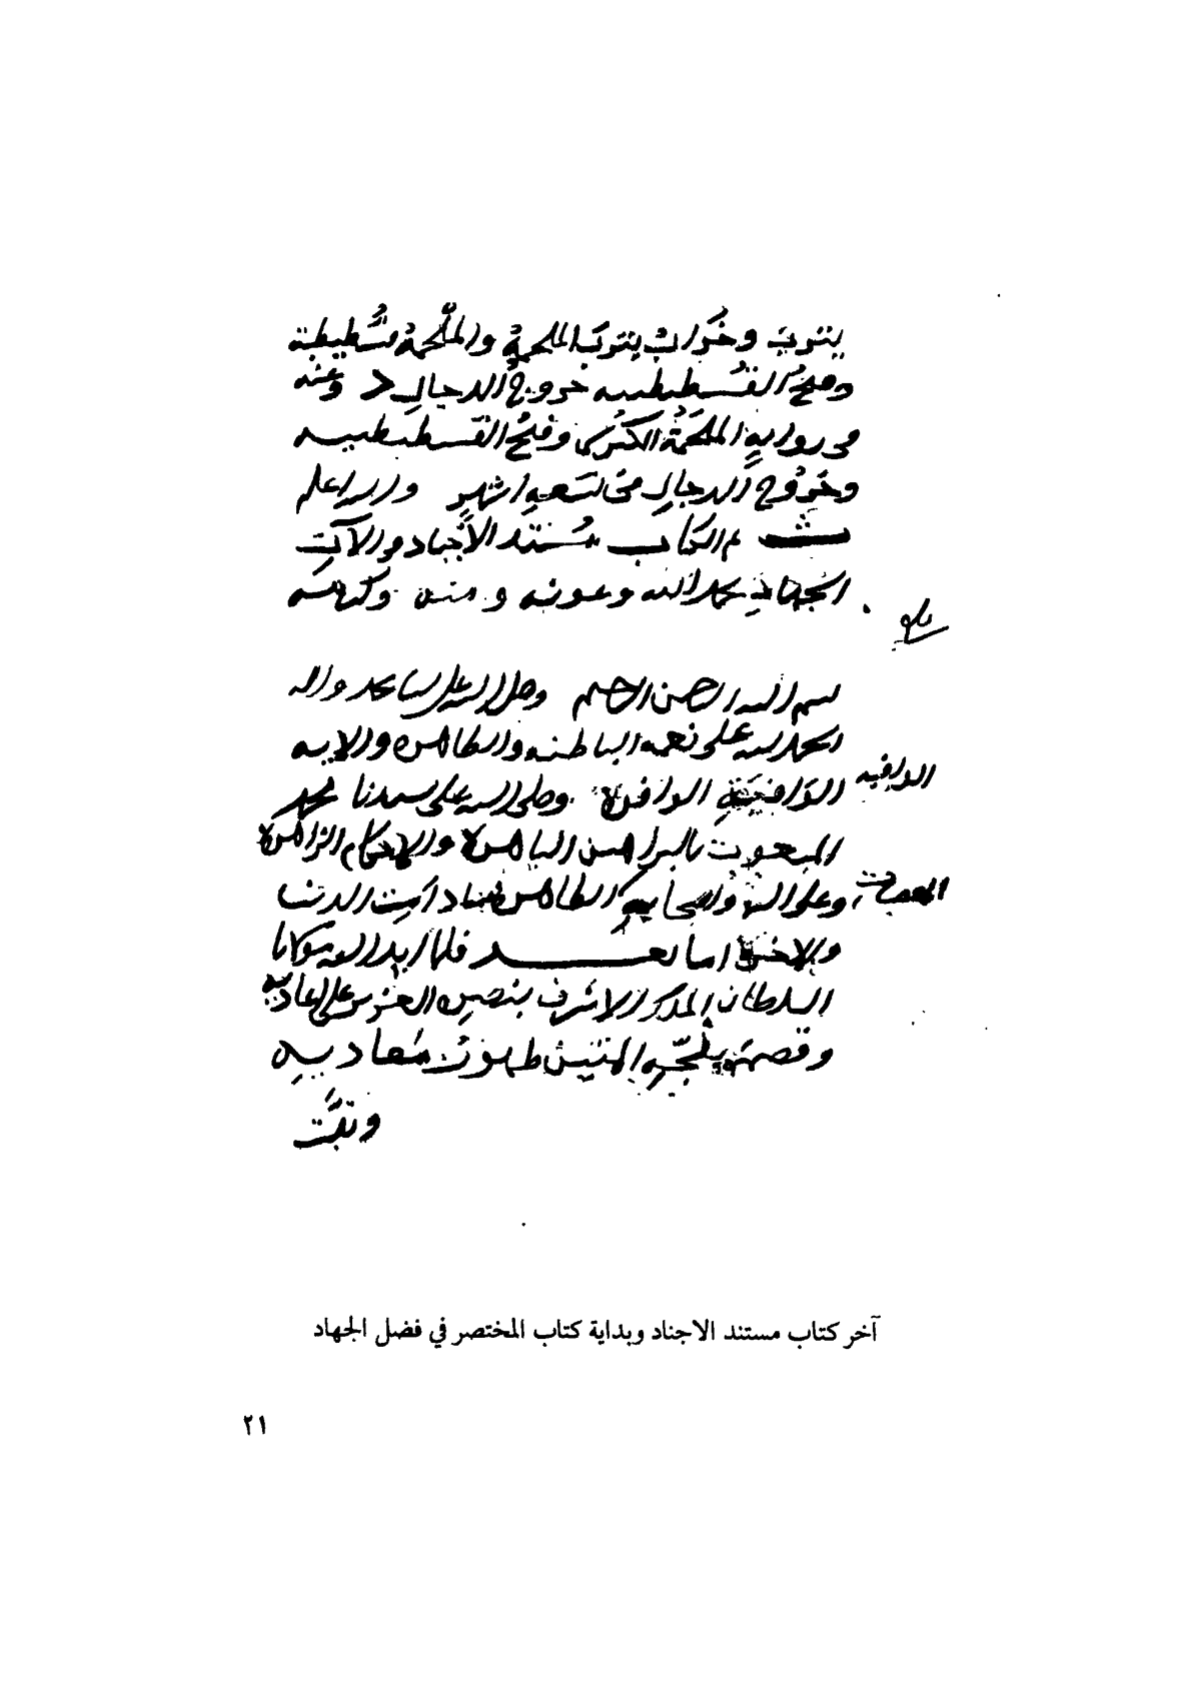 يثرب وخراب يثرب الملحمة والملحمة قسطيطية
وفتح القسطيطينيه خروج الدجال د وعنه
في رواية الملحمة الكبرى وفتح القسطيطينيه
وخروج الدجال في تسعة اشهر والله اعلم
تم الكتاب مستند الأجناد والآت
الجهاد بحمد الله وعونه ومنه وكرمه
بسم الله الرحمن الرحيم وصلى الله على سيدنا محمد واله
الحمد لله على نعمه الباطنه والظاهره والايه
الوافية الوافرة وصلى الله على سيدنا محمد
المبعوث بالبراهين الباهرة والاحكام الزاهرة
وعلى اله واصحابه الطاهرين ما دامت الدنيا
والاخرة اما بعد فلما ايد الله مولانا
السلطان الملك الاشرف بنصره العزيز على اعاديه
وقصمه المتين ظهور معاديه
وثبت
آخر كتاب مستند الاجناد وبداية كتاب المختصر في فضل الجهاد
٢١